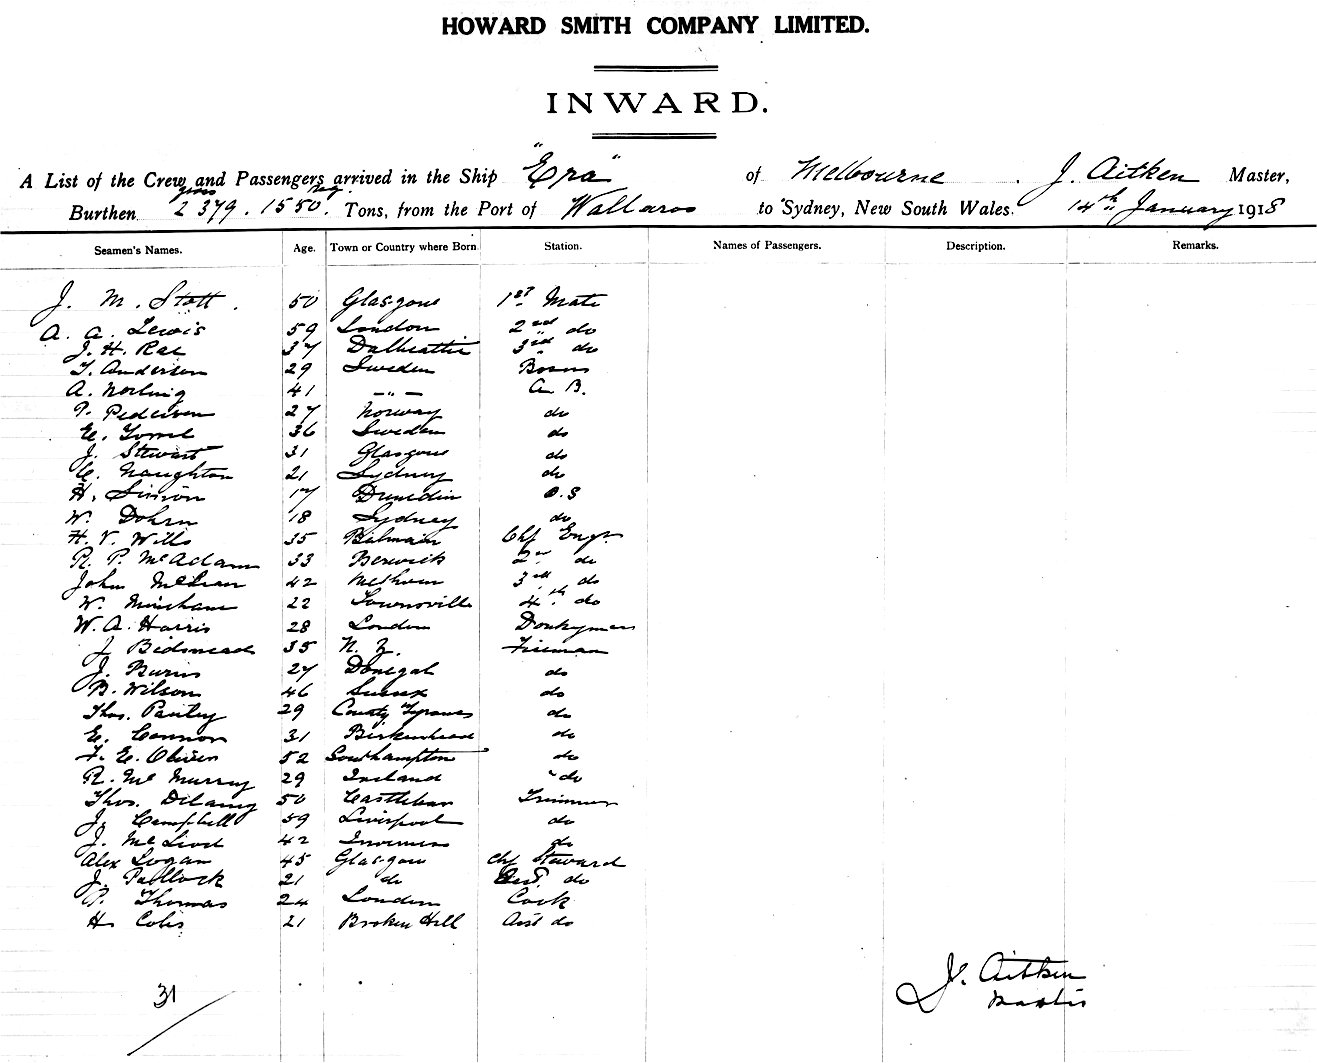 HOWARD SMITH COMPANY LIMITED.
INWARD.
A List of the Crew and Passengers arrived in the Ship "Era" of Melbourne . J. Aitken Master,
gross reg.
Burthen 2379 . 1550 . Tons, from the Port of Wallaroo to Sydney, New South Wales. 14th January 1918
Seamen's Names. Age. Town or Country where Born Station. Names of Passengers. Description. Remarks.
J. M. Stott . 50 Glasgow 1st Mate
A. A. Lewis 59 London 2nd do
J. H. Rae 37 Dalbeattie 3rd do
T. Andersen 29 Sweden Bosun
A. Norling 41 -"- A. B.
P. Pedersen 27 Norway do
E. 36 Sweden do
J. Stewart 31 Glasgow do
C. Naughton 21 Sydney do
H. Simon 17 Dunedin O.S
W. Dohrn 18 Sydney do
H. V. Wills 35 Balmain Chf Engr
R. P. McAdam 33 Berwick 2nd do
John McLean 42 3rd do
W. Mincham 22 Townsville 4th do
W. A. Harris 28 London Donkyman
J Bidmead 35 N. Z. Fireman
J. Burns 27 Donegal do
B. Wilson 46 Sussex do
Thos. 29 County Tyrone do
E. Connor 31 Birkenhead do
F. E. Oliver 52 Southampton do
R. Mc Murray 29 Ireland do
Thos. Delaney 50 Castlebar Trimmer
J. Campbell 59 Liverpool do
J. McLeod 42 Inverness do
Alex Logan 45 Glasgow Chf Steward
J. Pollock 21 do do
P. Thomas 24 London Cook
H. Coles 21 Broken Hill Asst do
J. Aitken
Master
31